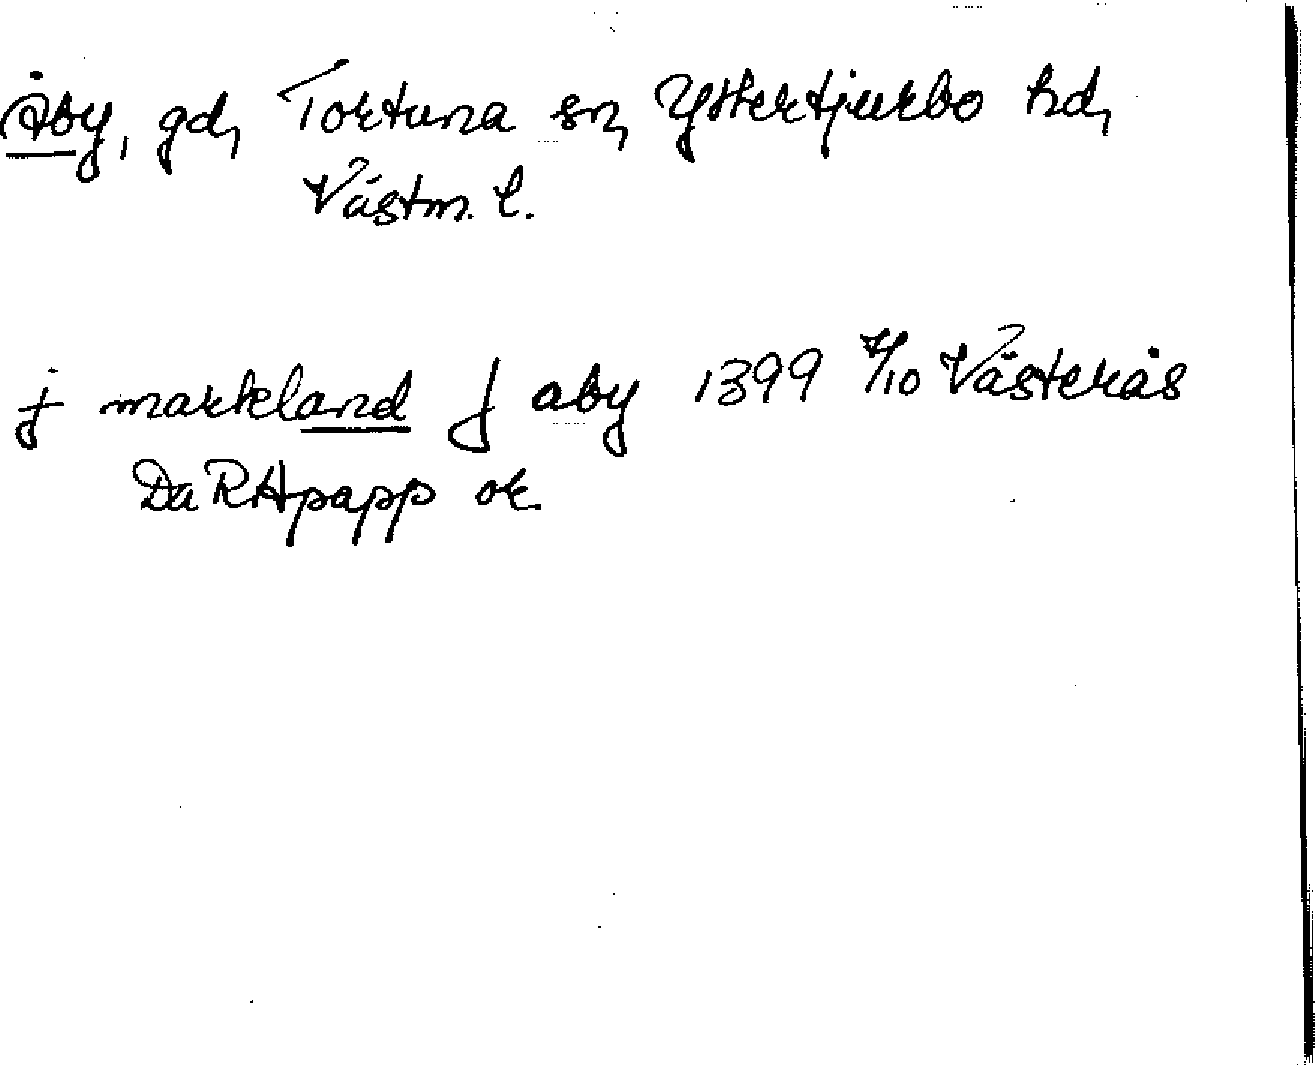 Åby, gd, Tortuna sn, Yttertjurbo hd,
Västm. l.
j markland j aby 1399 7/10 Västerås
Da RApapp or.